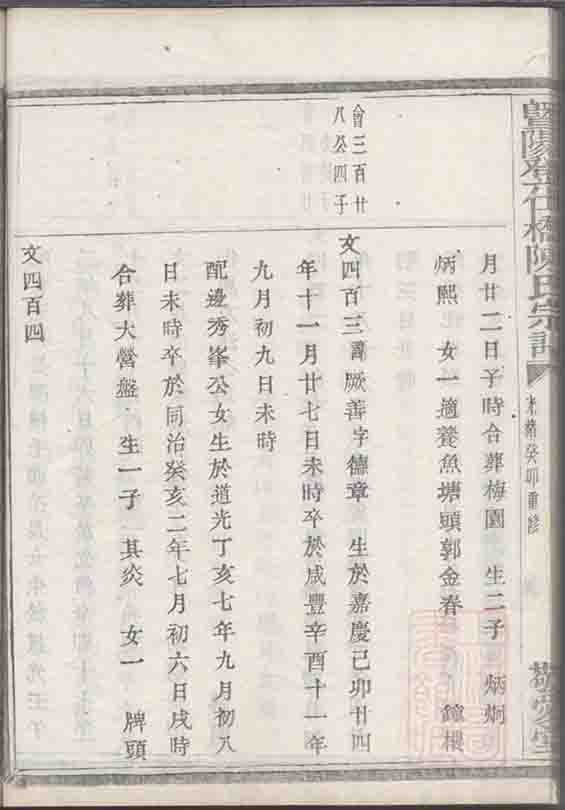 暨陽登仕橋陳氏宗譜
光緒癸卯重修
敬愛堂
月廿二日子時合葬梅園 生二子 炳炯
炳熙 女一適養魚塘頭郭金春 鐘根
會三百廿
八公四子
文四百三諱厥善字德章 生於嘉慶己卯廿四
年十一月廿七日未時卒於咸豐辛酉十一年
九月初九日未時
配邊秀峯公女生於道光丁亥七年九月初八
日未時卒於同治癸亥二年七月初六日戌時
合葬大營盤 生一子 其炎 女一 牌頭
文四百四